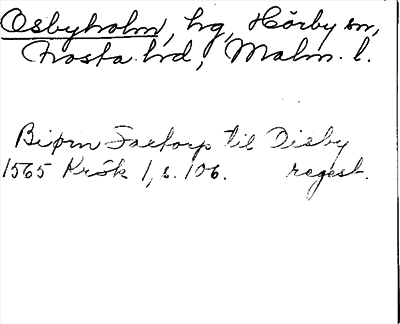 Osbyholm, hg, Hörby sn,
Frosta hd, Malm. l.
Biørn Factorp til Oisby
1565 Krók 1, s. 106. regest.